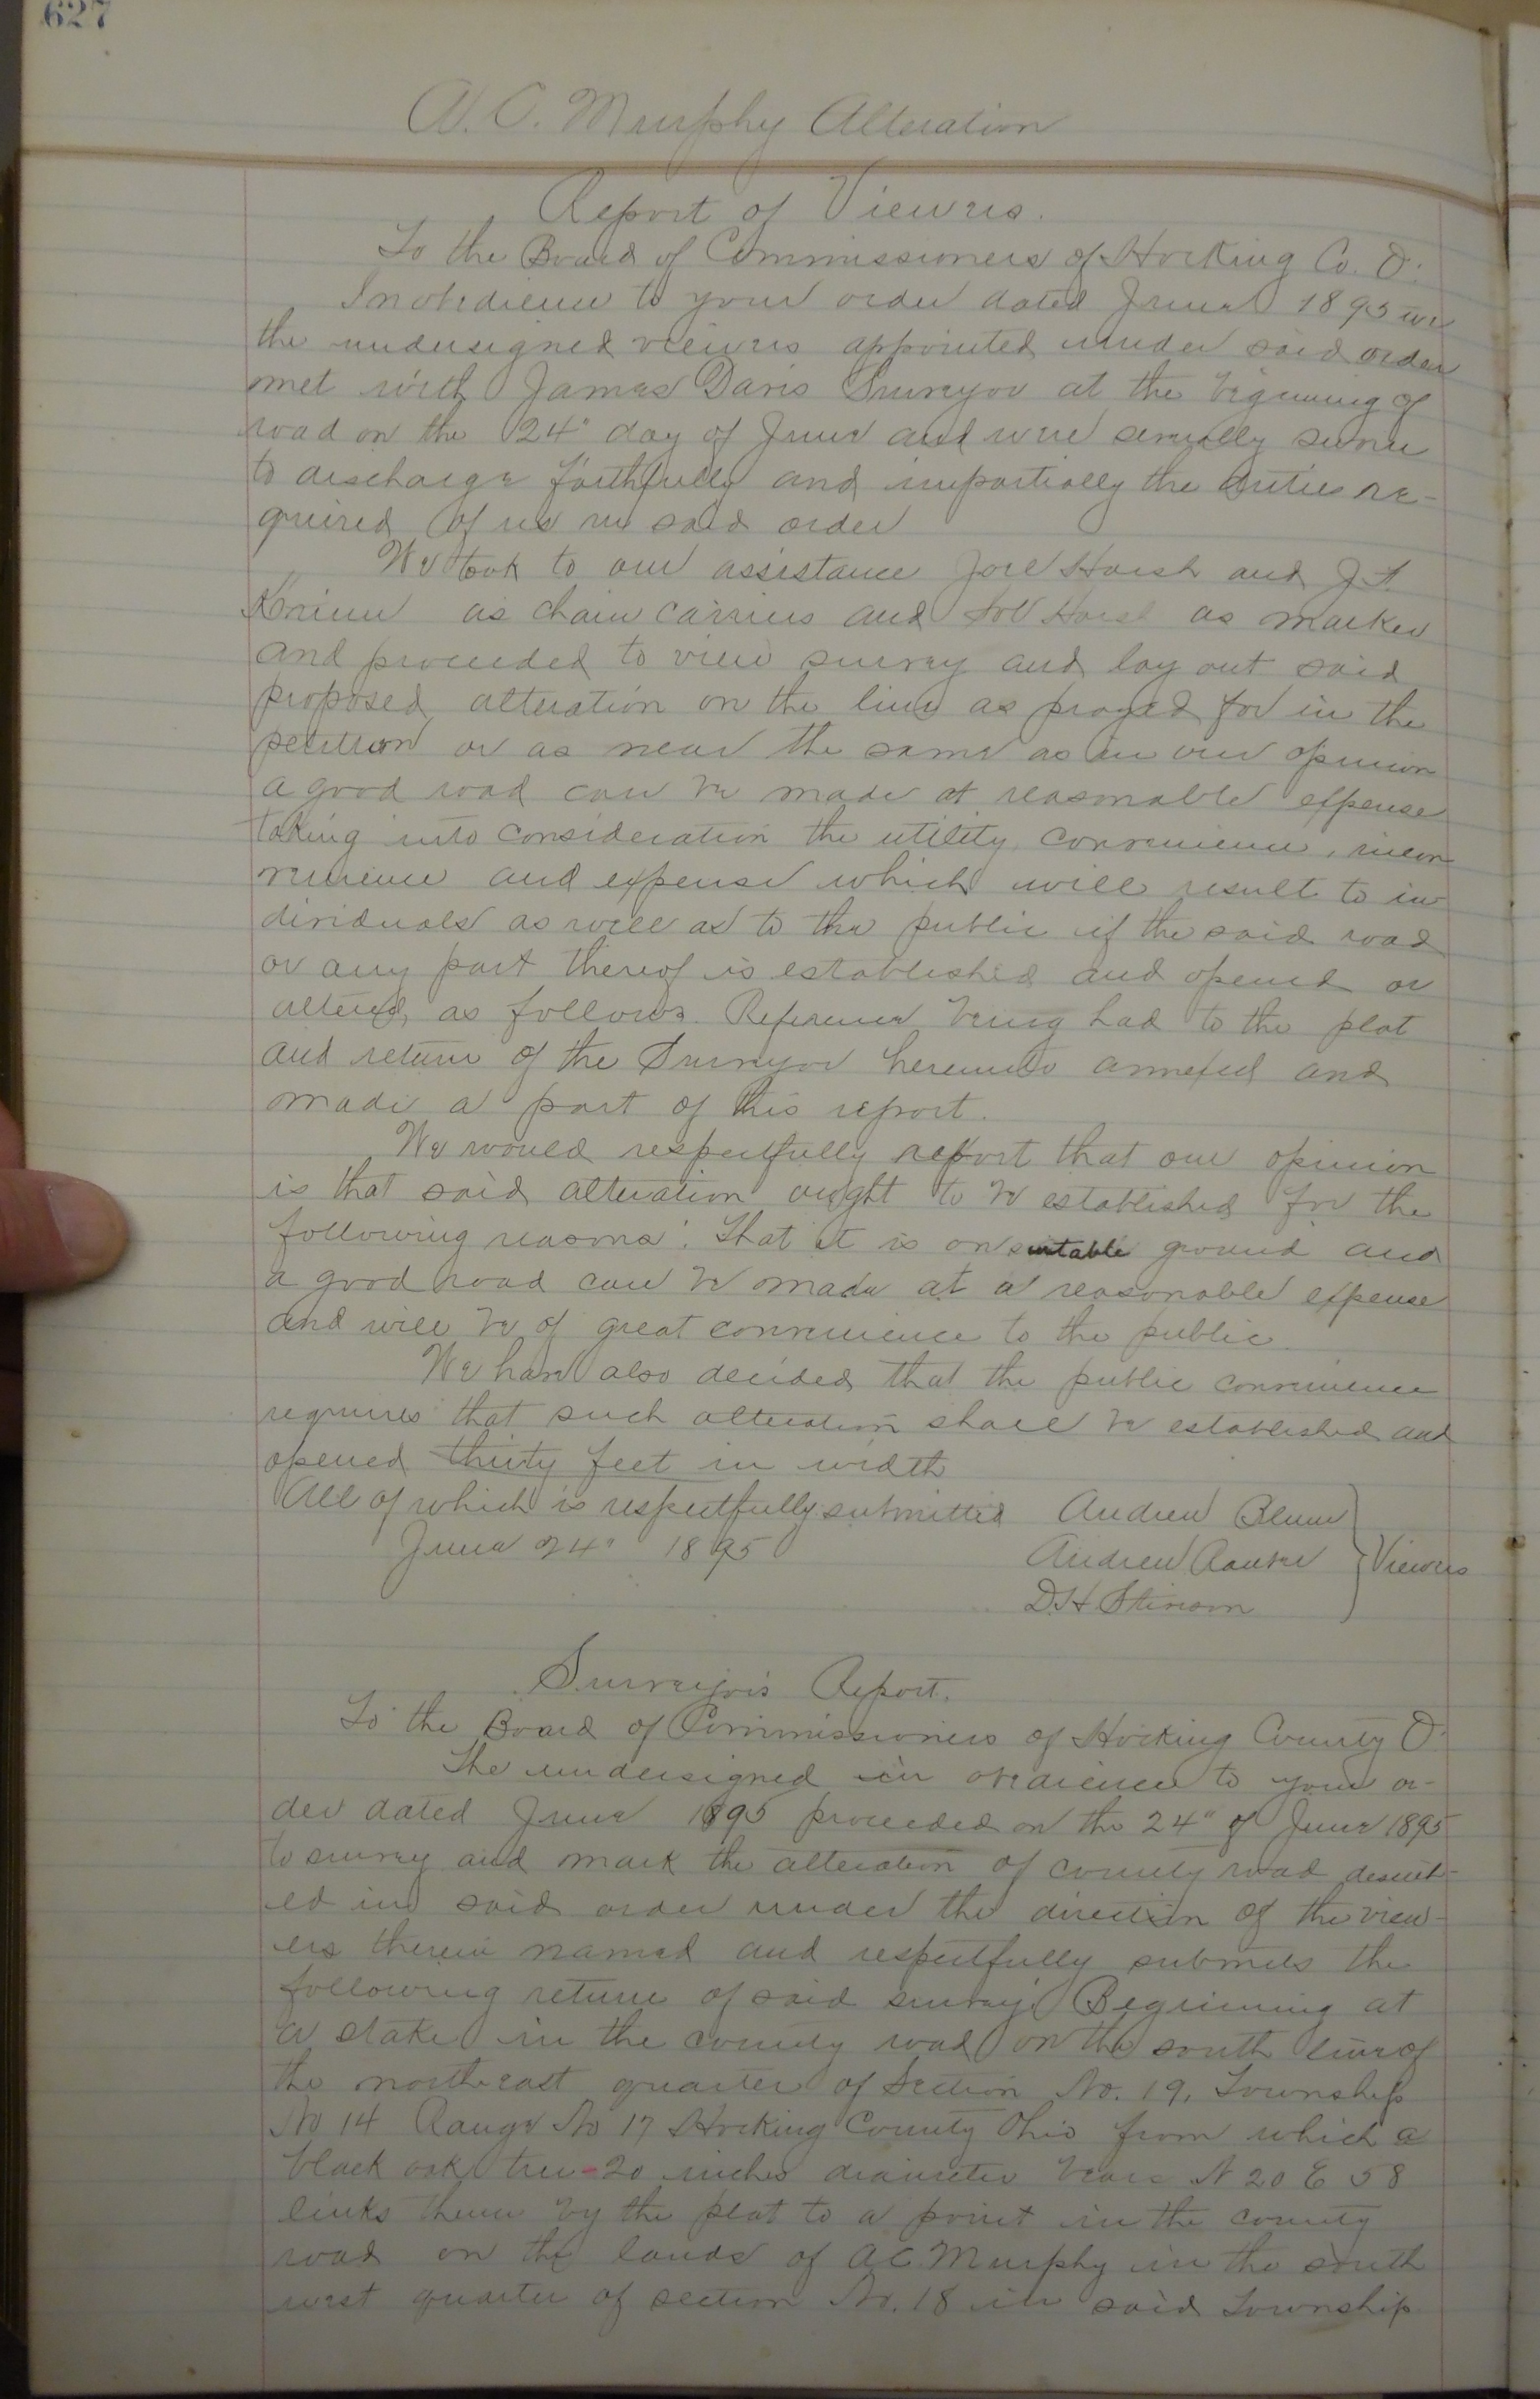 627
A. C. Murphy Alteration
Report of Viewers.
To the Board of Commissioners of Hocking Co. O.
In obedience to your order dated June 1895 we
the undersigned viewers appointed under said order
met with James Davis Surveyor at the beginning of
road on the 24" day of June and were severally sworn
to discharge faithfully and impartially the duties re-
quired of us in said order
We took to our assistance Joel Harsh and J. F.
as chain carriers and Sol Harsh as marker
and proceeded to view survey and lay out said
proposed alteration on the line as prayed for in the
petition or as near the same as in our opinion
a good road can be made at reasonable expense
taking into consideration the utility, convenience, incon
venience and expense which will result to in-
dividuals as well as to the public if the said road
or any part thereof is established and opened or
altered, as follows. Reference being had to the plat
and return of the Surveyor hereunto annexed and
made a part of this report.
We would respectfully report that our opinion
is that said alteration ought to be established for the
following reasons: That it is on suitable ground and
a good road can be made at a reasonable expense
and will be of great convenience to the public.
We have also decided that the public convenience
requires that such alteration shall be established and
opened thirty feet in width
All of which is respectfully submitted Andrew Blum
June 24" 1895 Andrew Viewers
D. H. Stinson
Surveyor's Report.
To the Board of Commissioners of Hocking County O.
The undersigned in obedience to your or-
der dated June 1895 proceeded on the 24" of June 1895
to survey and mark the alteration of county road describ-
ed in said order under the direction of the view-
ers therein named and respectfully submits the
following return of said survey. Beginning at
a stake in the county road on the south line of
the northeast quarter of Section No. 19, Township
No 14 Range No 17 Hocking County Ohio from which a
black oak tree 20 inches diameter bears N 20 E 58
links thence by the plat to a point in the county
road on the lands of A C Murphy in the south
west quarter of section No. 18 in said Township